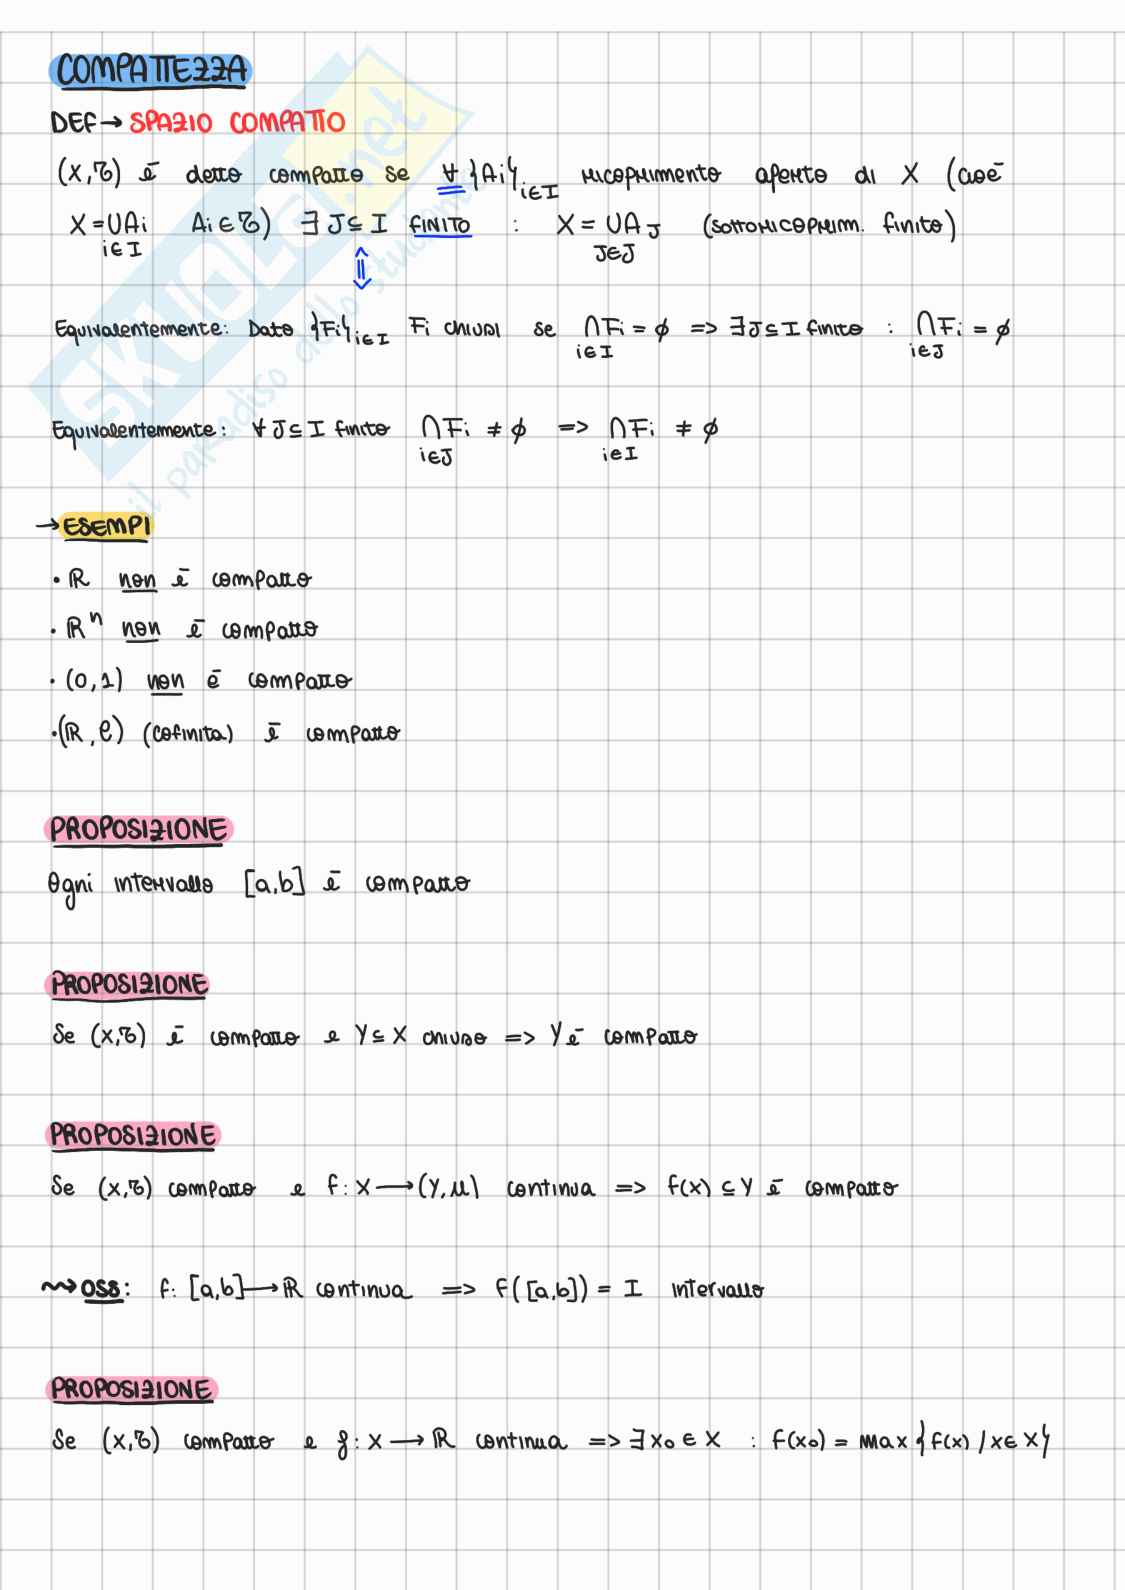 COMPATTEZZA
DEF → SPAZIO COMPATTO
(X,τ) è detto compatto se ∀ {Ai}i∈I ricoprimento aperto di X (cioè
X = ∪Ai i∈I Ai ∈ τ) ∃ J ⊆ I FINITO : X = ∪AJ J∈J (sottoricoprim. finito)
⇕
Equivalentemente: Dato {Fi}i∈I Fi chiusi se ∩Fi = ϕ i∈I => ∃ J ⊆ I finito : ∩Fi = ϕ i∈J
Equivalentemente: ∀ J ⊆ I finito ∩Fi ≠ ϕ i∈J => ∩Fi ≠ ϕ i∈I
→ ESEMPI
• ℝ non è compatto
• ℝⁿ non è compatto
• (0,1) non è compatto
• (ℝ, C) (cofinita) è compatto
PROPOSIZIONE
Ogni intervallo [a,b] è compatto
PROPOSIZIONE
Se (X,τ) è compatto e Y ⊆ X chiuso => Y è compatto
PROPOSIZIONE
Se (X,τ) compatto e f: X → (Y,μ) continua => f(x) ⊆ Y è compatto
⇝ OSS: f: [a,b] → ℝ continua => f([a,b]) = I intervallo
PROPOSIZIONE
Se (X,τ) compatto e f: X → ℝ continua => ∃ x₀ ∈ X : f(x₀) = max {f(x) / x ∈ X}
SKUOLA.net
il paradiso dello studente